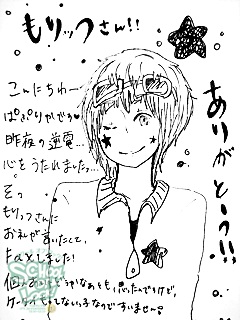 もりッつさん!!
ありがとーっ!!
こんにちわー
ぱきぴりかでっ♥
昨夜の逆電…
心をうたれましたっ…
そっ
もりっつさんに
お礼が言いたくて、
Faxしました!
個人あてはどうかなぁとも思ったんですけど、
ケータイもってない子なのですいません。